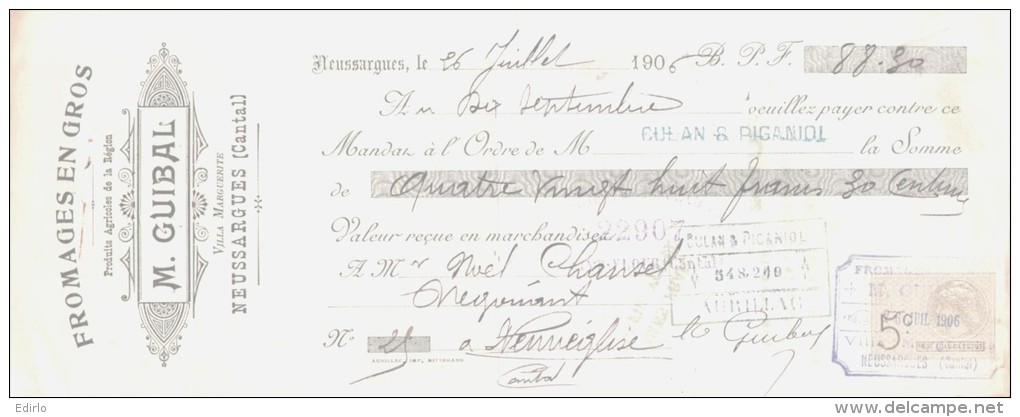 FROMAGES EN GROS
Produits Agricoles de la Région
M. GUIBAL
VILLA MARGUERITE
NEUSSARGUES (Cantal)
Neussargues, le 26 Juillet 1906 B. P. F. 88.30
Au Dix Septembre veuillez payer contre ce
Mandat à l'Ordre de M CULAN & PIGANIOL la Somme
de Quatre vingt huit francs 30 Centimes
Valeur reçue en marchandises 22907
CULAN & PIGANIOL
548249
AURILLAC
A Mr Noël
Négociant
No 25 à Neuvéglise
Cantal
M. Guibal
5c
1906
NEUSSARGUES (Cantal)
Edirlo
www.delcampe.net